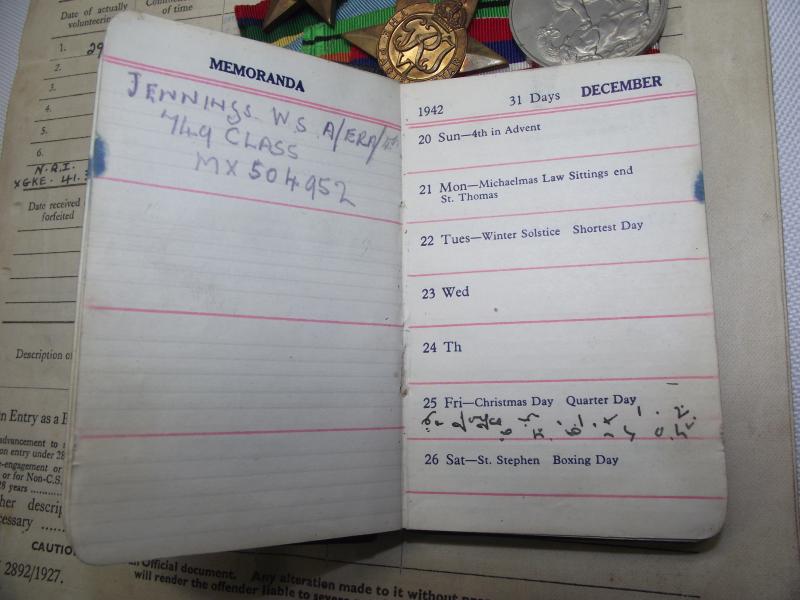 Date of actually
volunteering
of time
1. 29
2.
3.
4.
5.
6.
N.Q.I.
XGKE. 41.3
Date received
forfeited
Description of
in Entry as a
advancement to
on entry under 28
e-engagement or
or for Non-C.S.
28 years
cessary
CAUTIO
2892/1927.
an Official document. Any alteration made to it without
will render the offender liable to severe
MEMORANDA
JENNINGS W.S. A/ERA/4th
749 CLASS
MX 504952
1942 31 Days DECEMBER
20 Sun—4th in Advent
21 Mon—Michaelmas Law Sittings end
St. Thomas
22 Tues—Winter Solstice Shortest Day
23 Wed
24 Th
25 Fri—Christmas Day Quarter Day
26 Sat—St. Stephen Boxing Day